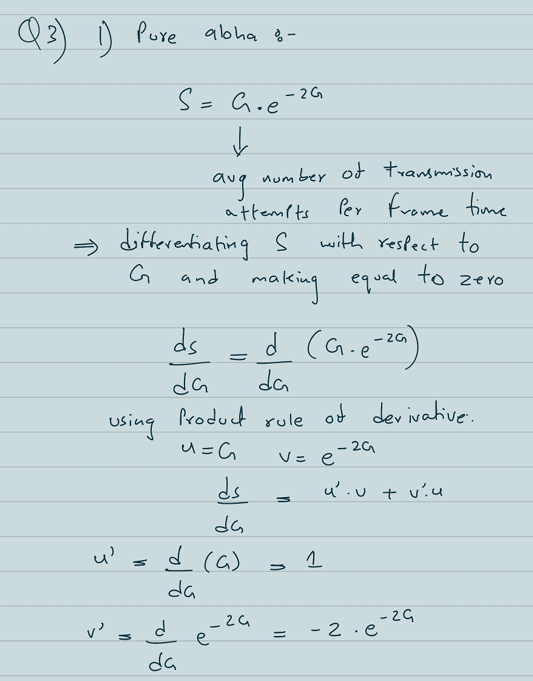 Q3) 1) Pure aloha :-
S = G.e^-2G
↓
avg number of transmission
attempts Per frame time
⇒ differentiating S with respect to
G and making equal to zero
ds/dG = d/dG (G.e^-2G)
using Product rule of derivative.
u=G v= e^-2G
ds/dG = u'.v + v'.u
u' = d/dG (G) = 1
v' = d/dG e^-2G = -2 . e^-2G